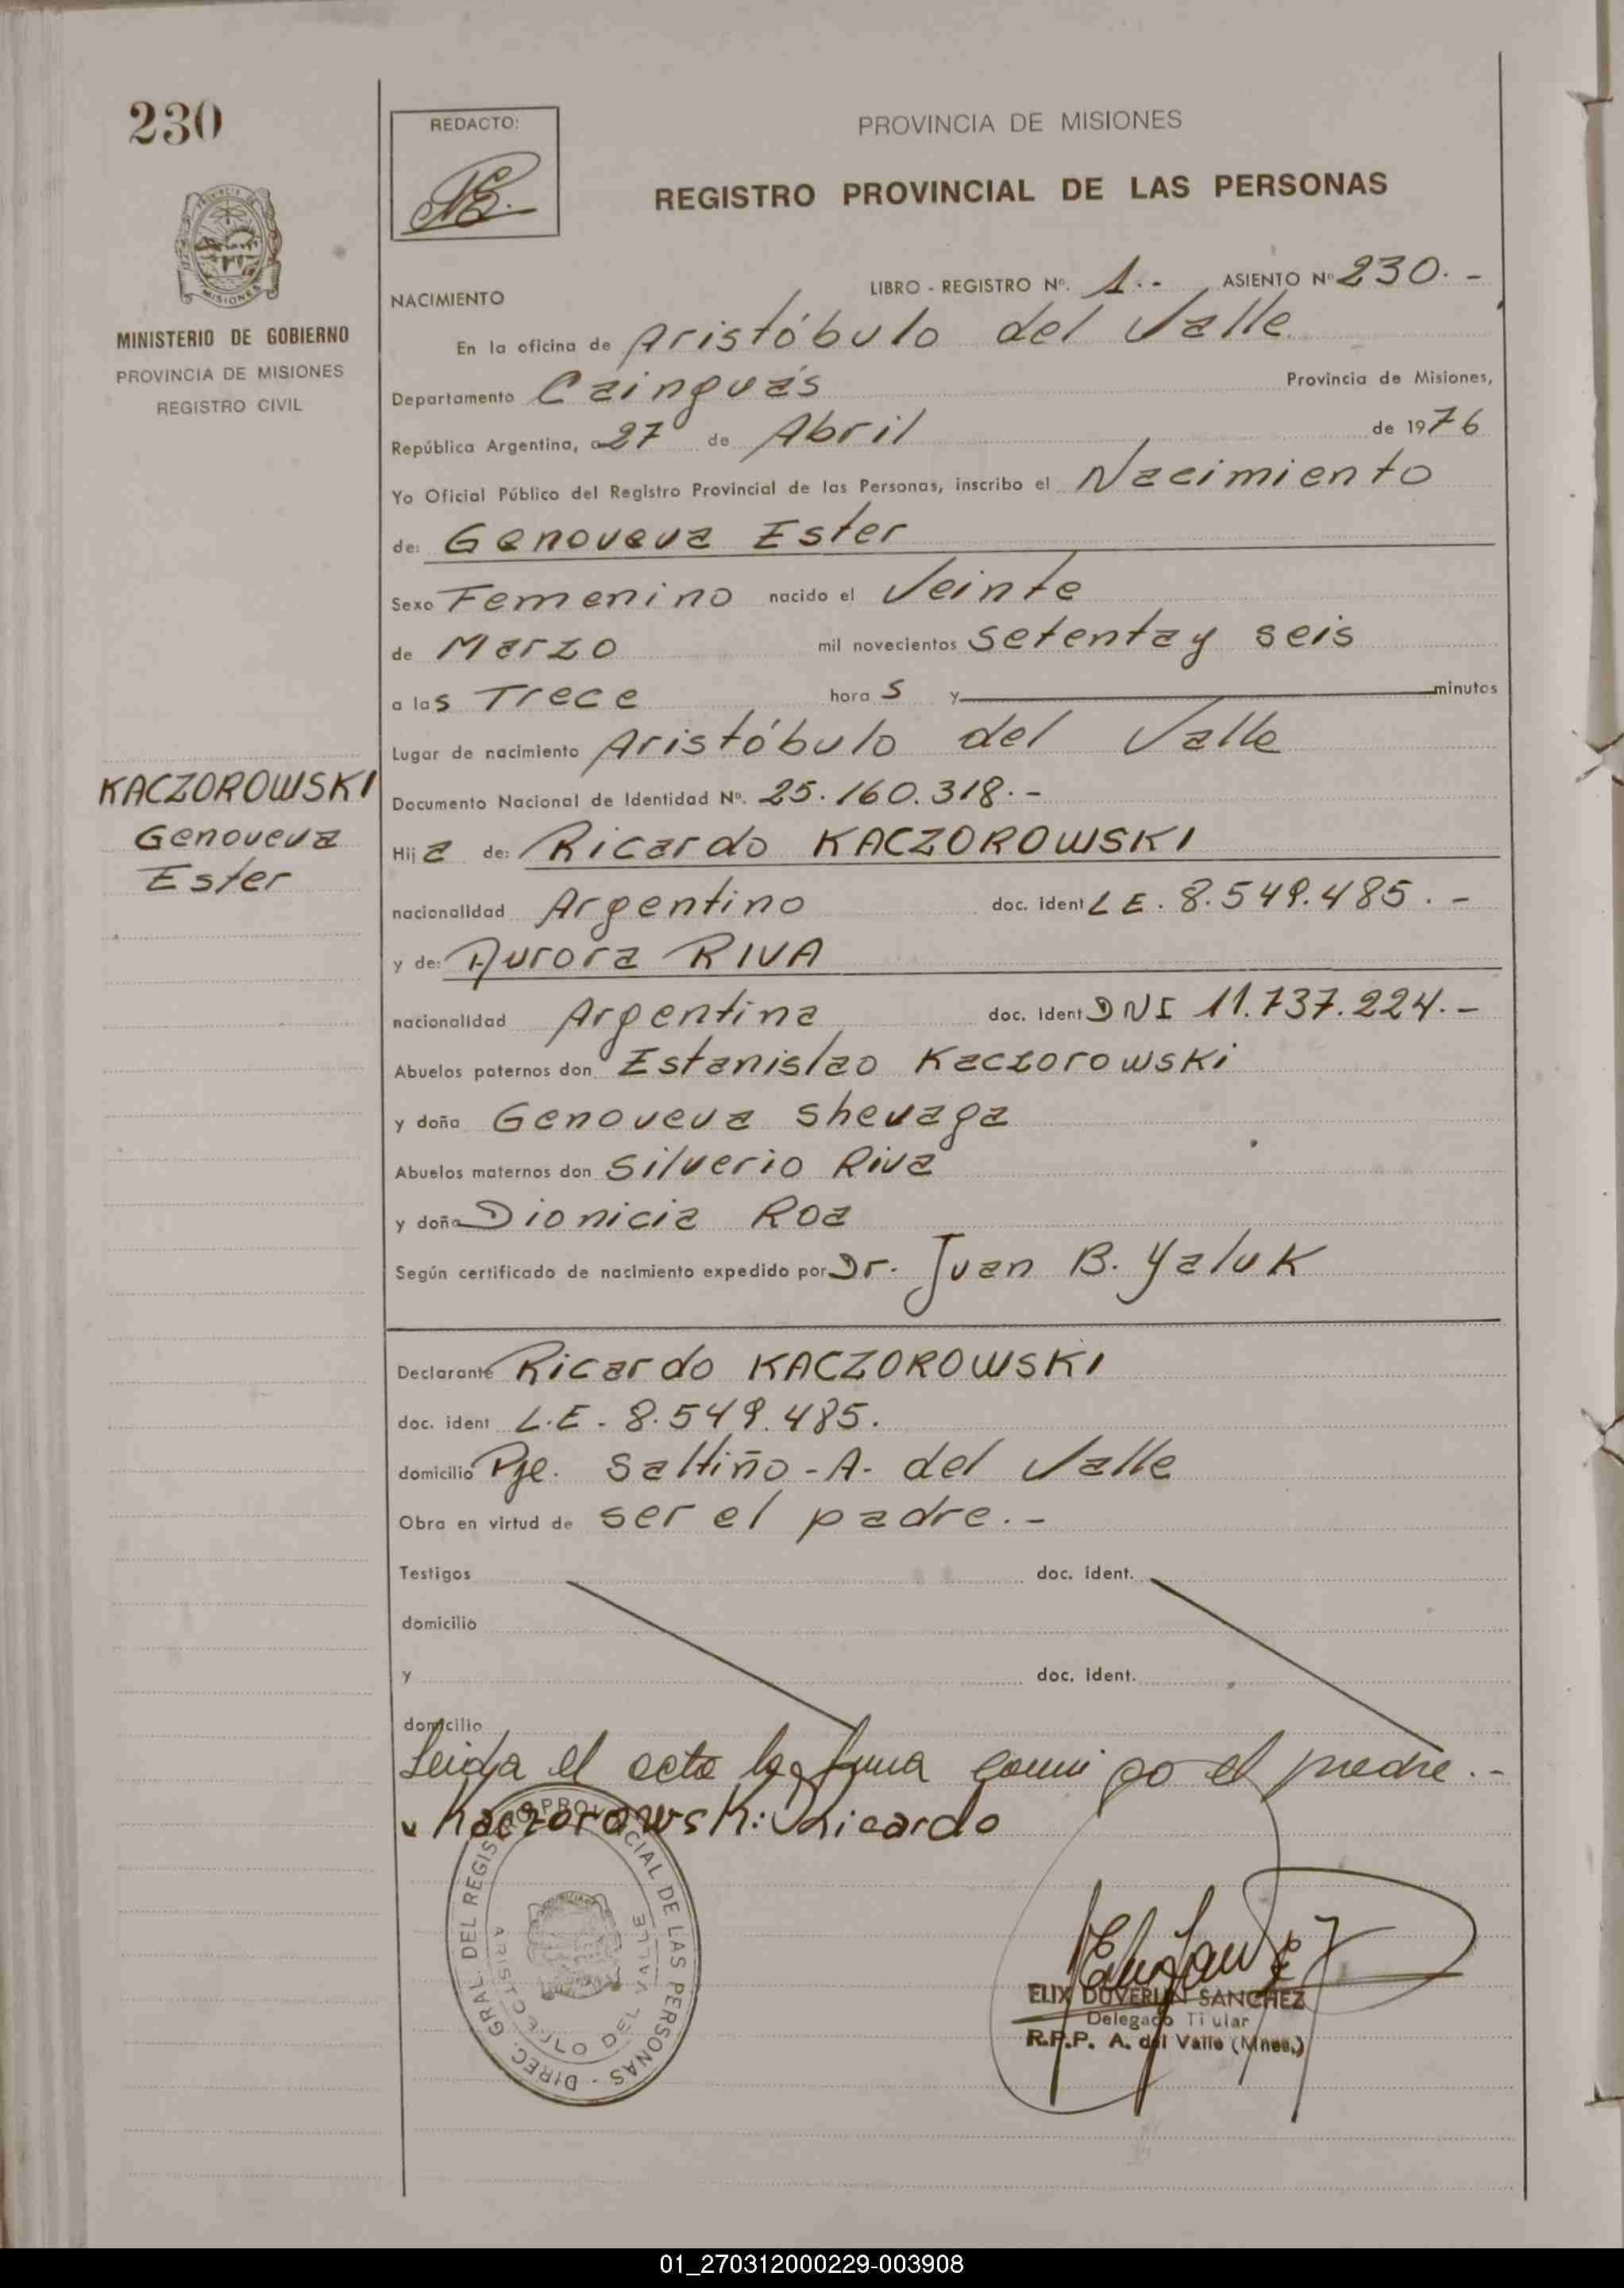 230
REDACTO:
PROVINCIA DE MISIONES
REGISTRO PROVINCIAL DE LAS PERSONAS
MISIONES
MINISTERIO DE GOBIERNO
PROVINCIA DE MISIONES
REGISTRO CIVIL
LIBRO - REGISTRO Nº. 1.- ASIENTO Nº 230.-
NACIMIENTO
En la oficina de Aristóbulo del Valle
Departamento Cainguás Provincia de Misiones,
República Argentina, a 27 de Abril de 1976
Yo Oficial Público del Registro Provincial de las Personas, inscribo el Nacimiento
de: Genoveva Ester
Sexo Femenino nacido el Veinte
de Marzo mil novecientos setenta y seis
a las Trece horas y minutos
Lugar de nacimiento Aristóbulo del Valle
KACZOROWSKI
Genoveva
Ester
Documento Nacional de Identidad Nº. 25.160.318.-
Hija de: Ricardo KACZOROWSKI
nacionalidad Argentino doc. ident LE. 8.549.485.-
y de: Aurora RIVA
nacionalidad Argentina doc. ident DNI 11.737.224.-
Abuelos paternos don Estanislao Kaczorowski
y doña Genoveva Shevaga
Abuelos maternos don Silverio Riva
y doña Dionicia Roa
Según certificado de nacimiento expedido por Dr. Juan B. Yaluk
Declarante Ricardo KACZOROWSKI
doc. ident L.E. 8.549.485.
domicilio Pje. Saltiño - A. del Valle
Obra en virtud de ser el padre.-
Testigos doc. ident.
domicilio
y doc. ident.
domicilio
Leida el acta la firma conmigo el padre.-
Kaczorowski Ricardo
DIREC. GRAL. DEL REGISTRO PROVINCIAL DE LAS PERSONAS -
ARISTOBULO DEL VALLE
ELIX DUVERLIN SANCHEZ
Delegado Titular
R.P.P. A. del Valle (Mnes.)
01_270312000229-003908